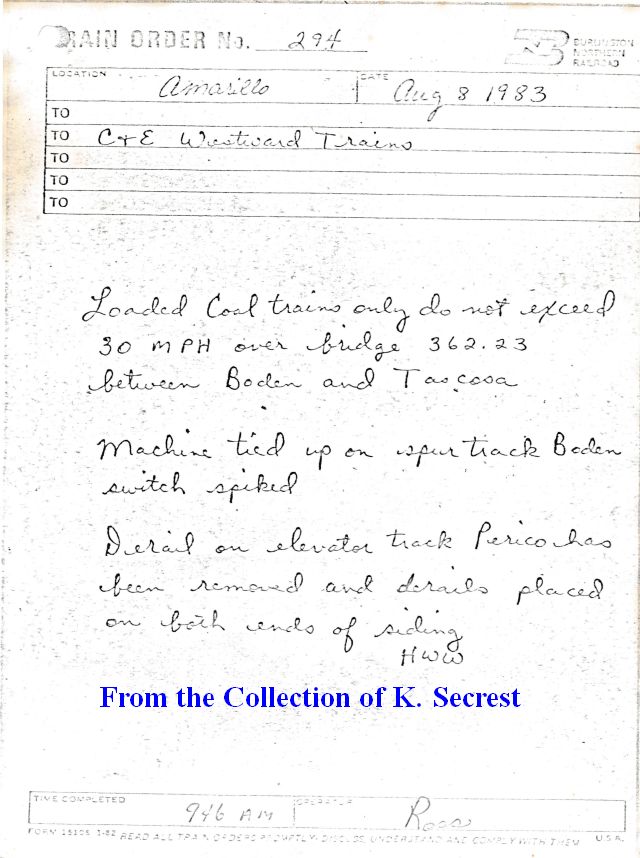 TRAIN ORDER No. 294
BURLINGTON
NORTHERN
RAILROAD
LOCATION Amarillo DATE Aug 8 1983
TO
TO C+E Westward Trains
TO
TO
TO
Loaded Coal trains only do not exceed
30 MPH over bridge 362.23
between Boden and Tascosa
Machine tied up on spur track Boden
switch spiked
Derail on elevator track Perico has
been removed and derails placed
on both ends of siding
HWW
From the Collection of K. Secrest
TIME COMPLETED 946 AM OPERATOR Ross
FORM 15105 1-82 READ ALL TRAIN ORDERS PROMPTLY: DISCUSS, UNDERSTAND AND COMPLY WITH THEM U.S.A.